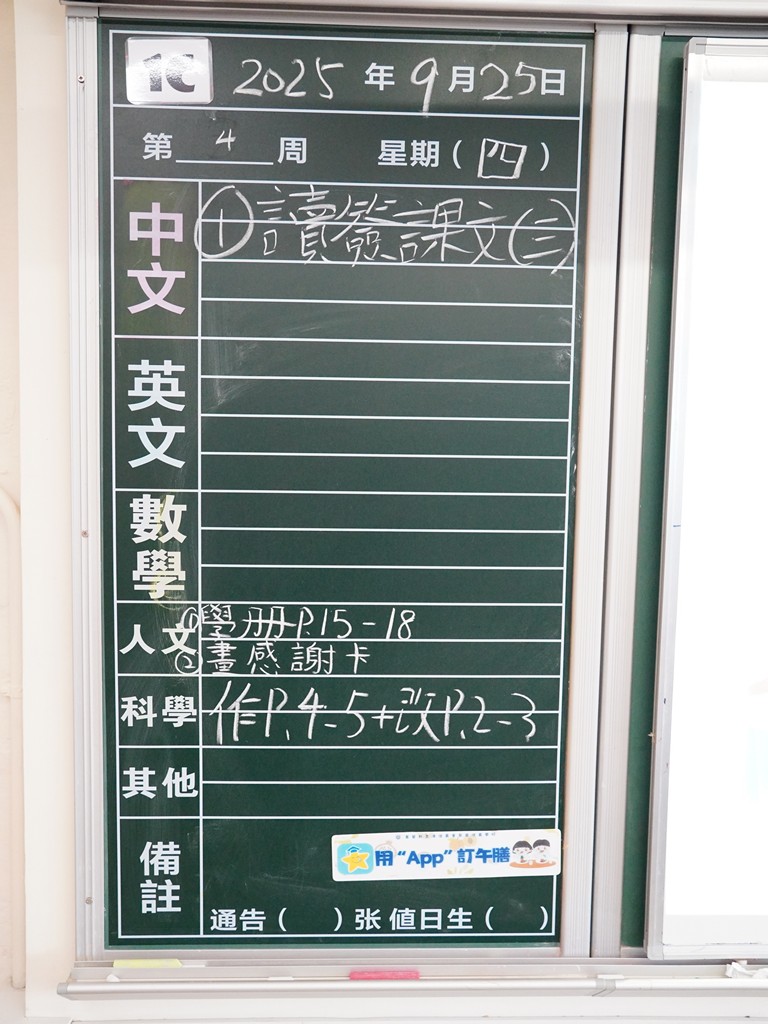 1C 2025 年 9 月 25 日
第 4 周 星期 ( 四 )
中文 ① 讀簽課文(三)
英文
數學
人文 ① 學册P.15-18
② 畫感謝卡
科學 作P.4-5+改P.2-3
其他
備註
用 “App” 訂午膳
通告 ( ) 张 值日生 ( )